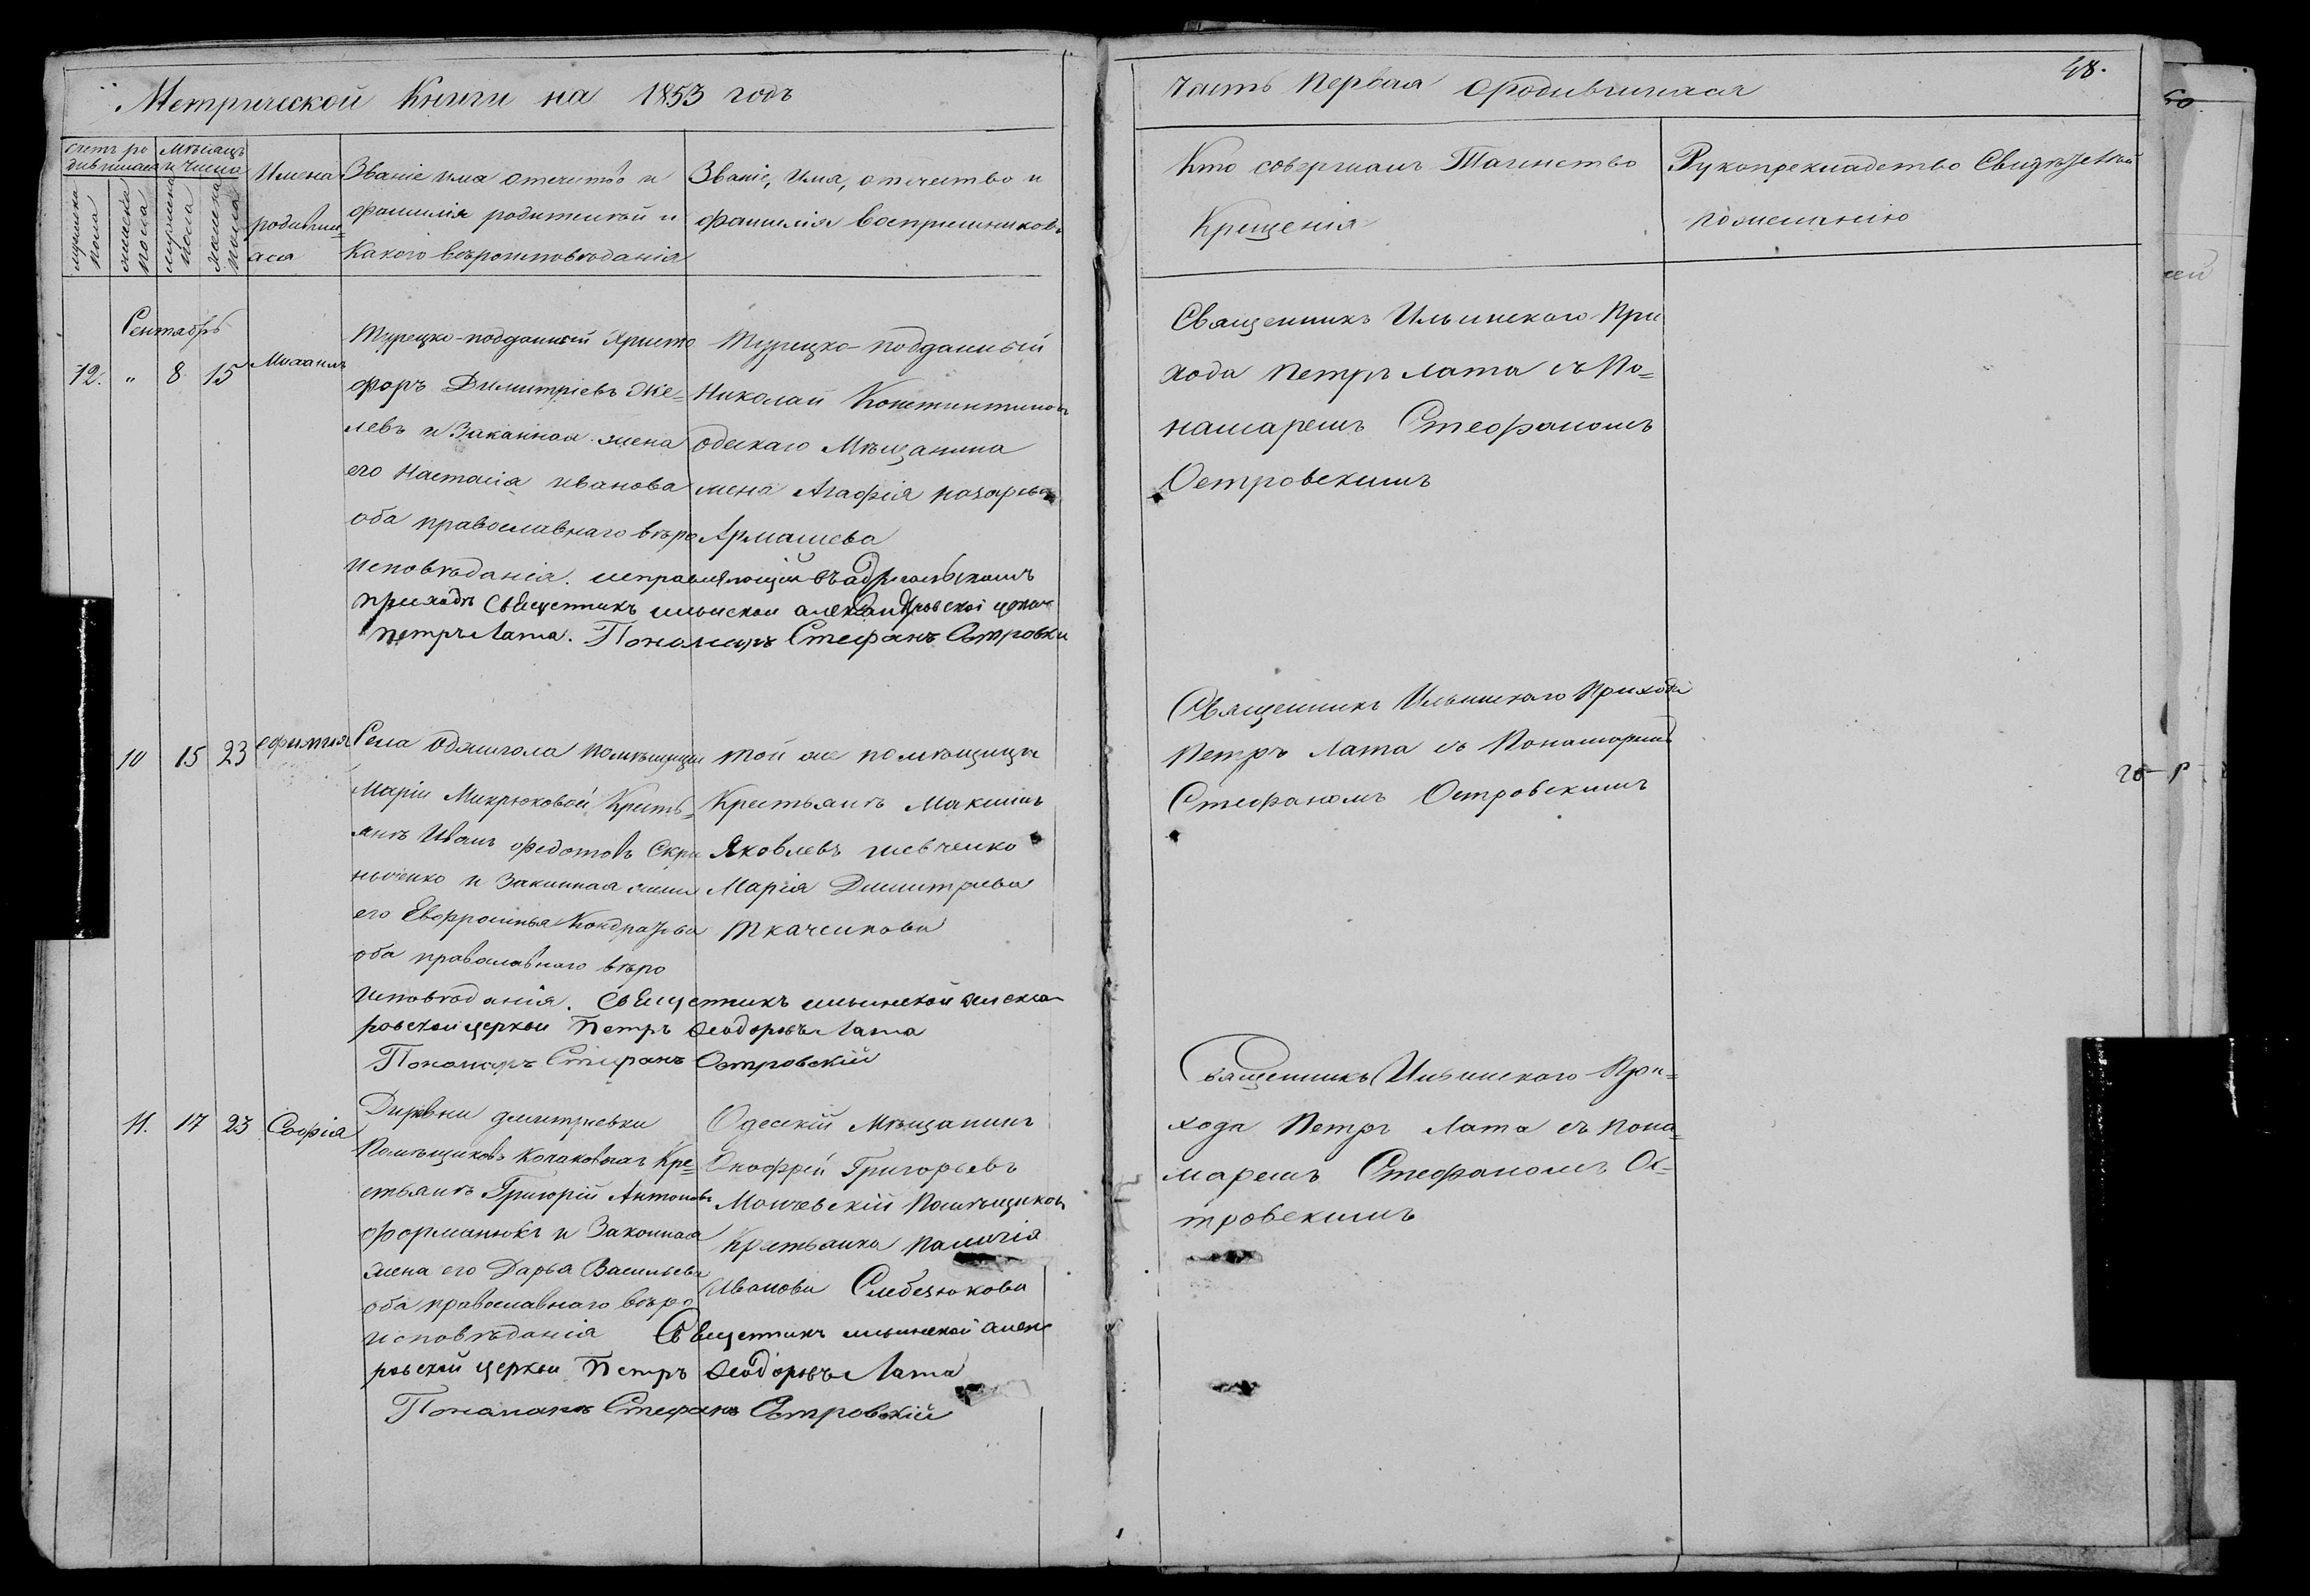 Метрической Книги на 1853 годъ
Счетъ ро
дившихся
Мѣсяцъ
и числа
мужеска
пола
женска
пола
мужеска
пола
женска
пола
Имена
родивши=
хся
Званіе имя отечество и
фамилія родителей и
какого вѣроисповѣданія
Званіе, Имя, отечество и
фамилія воспріемниковъ
Сентябрь
12. " 8 15
Михаилъ
Турецко-подданный Христо
форъ Димитріевъ Же=
левъ и Законная жена
его Настасія иванова
оба православнаго вѣро
исповѣданія. исправляющій въ
приходѣ Священникъ ильинской александровской
петръ Лата. Пономарь Стефанъ Островски
Турецко-подданный
Николай Константиновъ
одескаго Мѣщанина
жена Агафія назарьева
Армашева
10 15 23
ефимія
Села Аджигола помѣщицы
Маріи Микрюковой Кресть=
янъ Иванъ федотовъ Скри
ниченко и Законная жена
его Евфросинья Кондратьева
оба православнаго вѣро
исповѣданія. Священникъ ильинской
ровской церкви Петръ Ѳеодоровъ Лата
Пономарь Стефанъ Островскій
той же помѣщицы
Крестьянъ Максимъ
Яковлевъ шевченко
Марія Димитріева
Ткаченкова
11. 17 23
Софія
Деревни дмитріевки
Помѣщиковъ Кре=
стьянъ Григорій Антоновъ
форманюкъ и Законная
жена его Дарья Васильева
оба православнаго вѣро
исповѣданія Священникъ ильинской
ровской церкви Петръ Ѳеодоровъ Лата
Пономарь Стефанъ Островскій
Одесскій Мѣщанинъ
Онофрій Григорьевъ
Помѣщиковъ
Крестьянка
Иванова
Часть Первая о родившихся
48.
Кто совершалъ Таинство
Крещенія
Рукоприкладство Свидѣтелей
по желанію
Священникъ Ильинского При
хода Петръ Лата съ По=
намаремъ Стефаномъ
Островскимъ
Священникъ Ильинского Прихода
Петръ Лата съ Понамаремъ
Стефаномъ Островскимъ
Священникъ Ильинского При=
хода Петръ Лата съ Пона=
маремъ Стефаномъ Ос=
тровскимъ